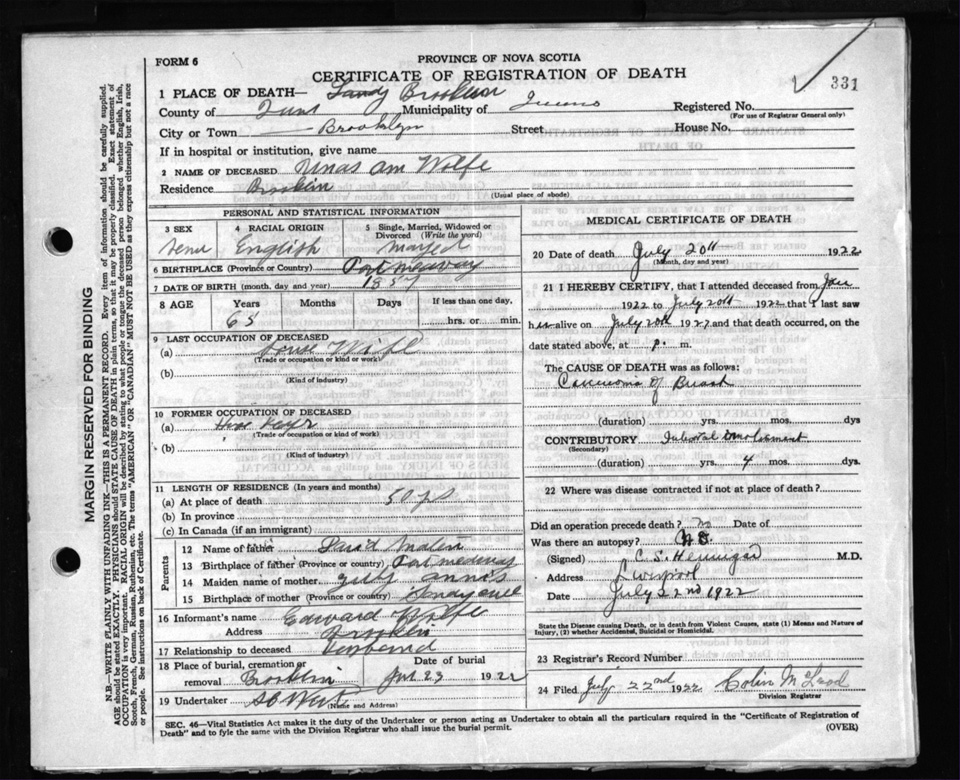 331
FORM 6
PROVINCE OF NOVA SCOTIA
CERTIFICATE OF REGISTRATION OF DEATH
1 PLACE OF DEATH—
County of Municipality of Queens Registered No.
(For use of Registrar General only)
City or Town Brooklyn Street House No.
If in hospital or institution, give name
2 NAME OF DECEASED Ann Wolfe
Residence Brooklin
(Usual place of abode)
PERSONAL AND STATISTICAL INFORMATION
3 SEX
4 RACIAL ORIGIN English
5 Single, Married, Widowed or Divorced (Write the word)
6 BIRTHPLACE (Province or Country) Port medway
7 DATE OF BIRTH (month, day and year) 1857
8 AGE Years Months Days If less than one day,
65 hrs. or min.
9 LAST OCCUPATION OF DECEASED
(a) House Wife
(Trade or occupation or kind or work)
(b)
(Kind of industry)
10 FORMER OCCUPATION OF DECEASED
(a)
(Trade or occupation or kind of work)
(b)
(Kind of industry)
11 LENGTH OF RESIDENCE (In years and months)
(a) At place of death 50 yrs
(b) In province
(c) In Canada (if an immigrant)
Parents
12 Name of father
13 Birthplace of father (Province or country) Port medway
14 Maiden name of mother
15 Birthplace of mother (Province or country)
16 Informant's name Edward Wolfe
Address Brooklin
17 Relationship to deceased Husbend
18 Place of burial, cremation or removal Brooklin Date of burial 23 1922
19 Undertaker
(Name and Address)
MEDICAL CERTIFICATE OF DEATH
20 Date of death July 20th 1922
(Month, day and year)
21 I HEREBY CERTIFY, that I attended deceased from
1922 to July 20th 1922 that I last saw
her alive on July 20th 1922 and that death occurred, on the
date stated above, at p. m.
The CAUSE OF DEATH was as follows:
Carcinoma of Breast
(duration) yrs. mos. dys
CONTRIBUTORY Internal Involvement
(Secondary)
(duration) yrs. 4 mos. dys.
22 Where was disease contracted if not at place of death?
Did an operation precede death? no Date of
Was there an autopsy? no.
(Signed) C. S. Hennigar M.D.
Address Liverpool
Date July 22nd 1922
State the Disease causing Death, or in death from Violent Causes, state (1) Means and Nature of Injury, (2) whether Accidental, Suicidal or Homicidal.
23 Registrar's Record Number
24 Filed July 22nd 1922 Colin McLeod
Division Registrar
SEC. 46—Vital Statistics Act makes it the duty of the Undertaker or person acting as Undertaker to obtain all the particulars required in the "Certificate of Registration of
Death" and to fyle the same with the Division Registrar who shall issue the burial permit.
(OVER)
MARGIN RESERVED FOR BINDING
N.B.—WRITE PLAINLY WITH UNFADING INK—THIS IS A PERMANENT RECORD. Every item of information should be carefully supplied.
AGE should be stated EXACTLY. PHYSICIANS should STATE CAUSE OF DEATH in plain terms, so that it may be properly classified. Exact statement of
OCCUPATION is very important. RACIAL ORIGIN will be described by stating to what people or tongue the deceased person belonged whether English, Irish,
Scotch, French, German, Russian, Ruthenian, etc. The terms "AMERICAN" OR "CANADIAN" MUST NOT BE USED as they express citizenship but not a race
or people. See instructions on back of Certificate.